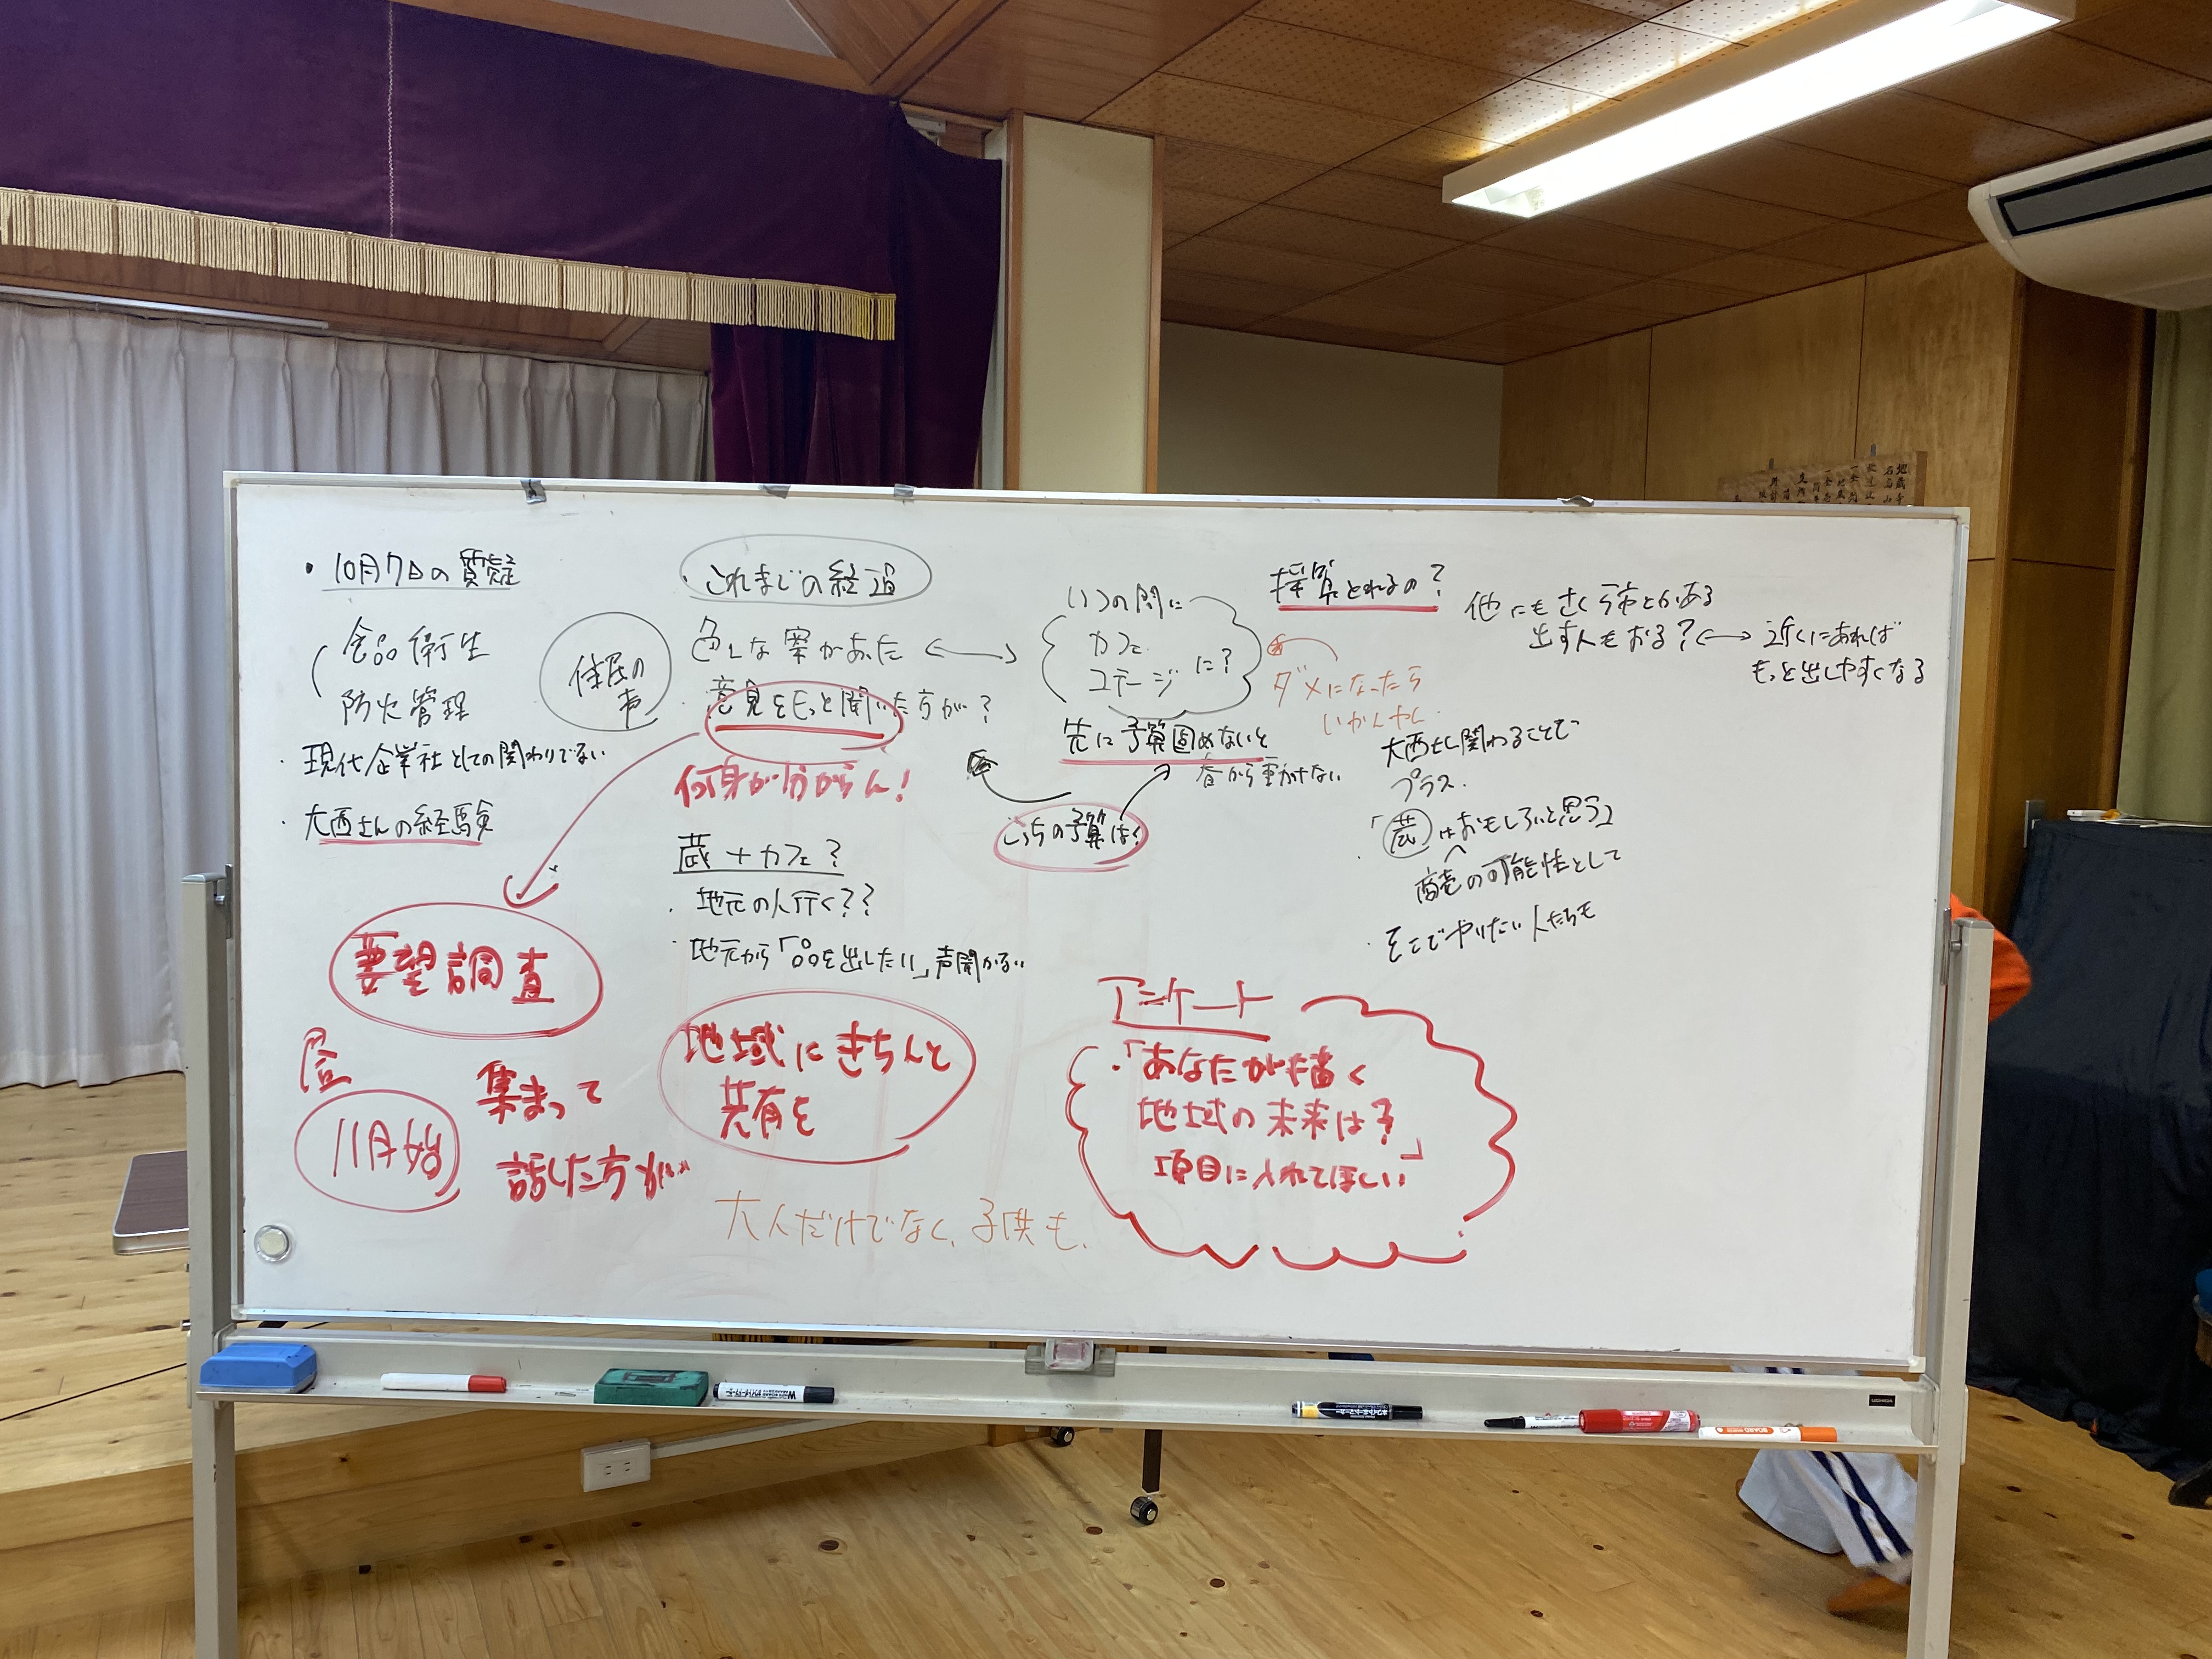 ・10月7日の質疑
食品衛生
防火管理
・現代企業社としての関わりでない
・大西さんの経験
住民の
声
・これまでの経過
色んな案があった
・意見をもっと聞いた方が?
何身が分からん!
蔵+カフェ?
・地元の人行く??
・地元から「品を出したい」声聞かない
いつの間に
カフェ
ステージに?
先に予算固めないと
春から動けない
こっちの予算は?
採算とれるの?
ダメになったら
いかんやん
他にもさくら市とかある
出す人もおる?
近くにあれば
もっと出しやすくなる
大西さん関わることで
プラス.
・「蔵はおもしろいと思う」
商売の可能性として
・そこでやりたい人たちも
要望調査
11月始
集まって
話した方が…
地域にきちんと
共有を
大人だけでなく、子供も、
アンケート
・「あなたが描く
地域の未来は?」
項目に入れてほしい
UCHIDA